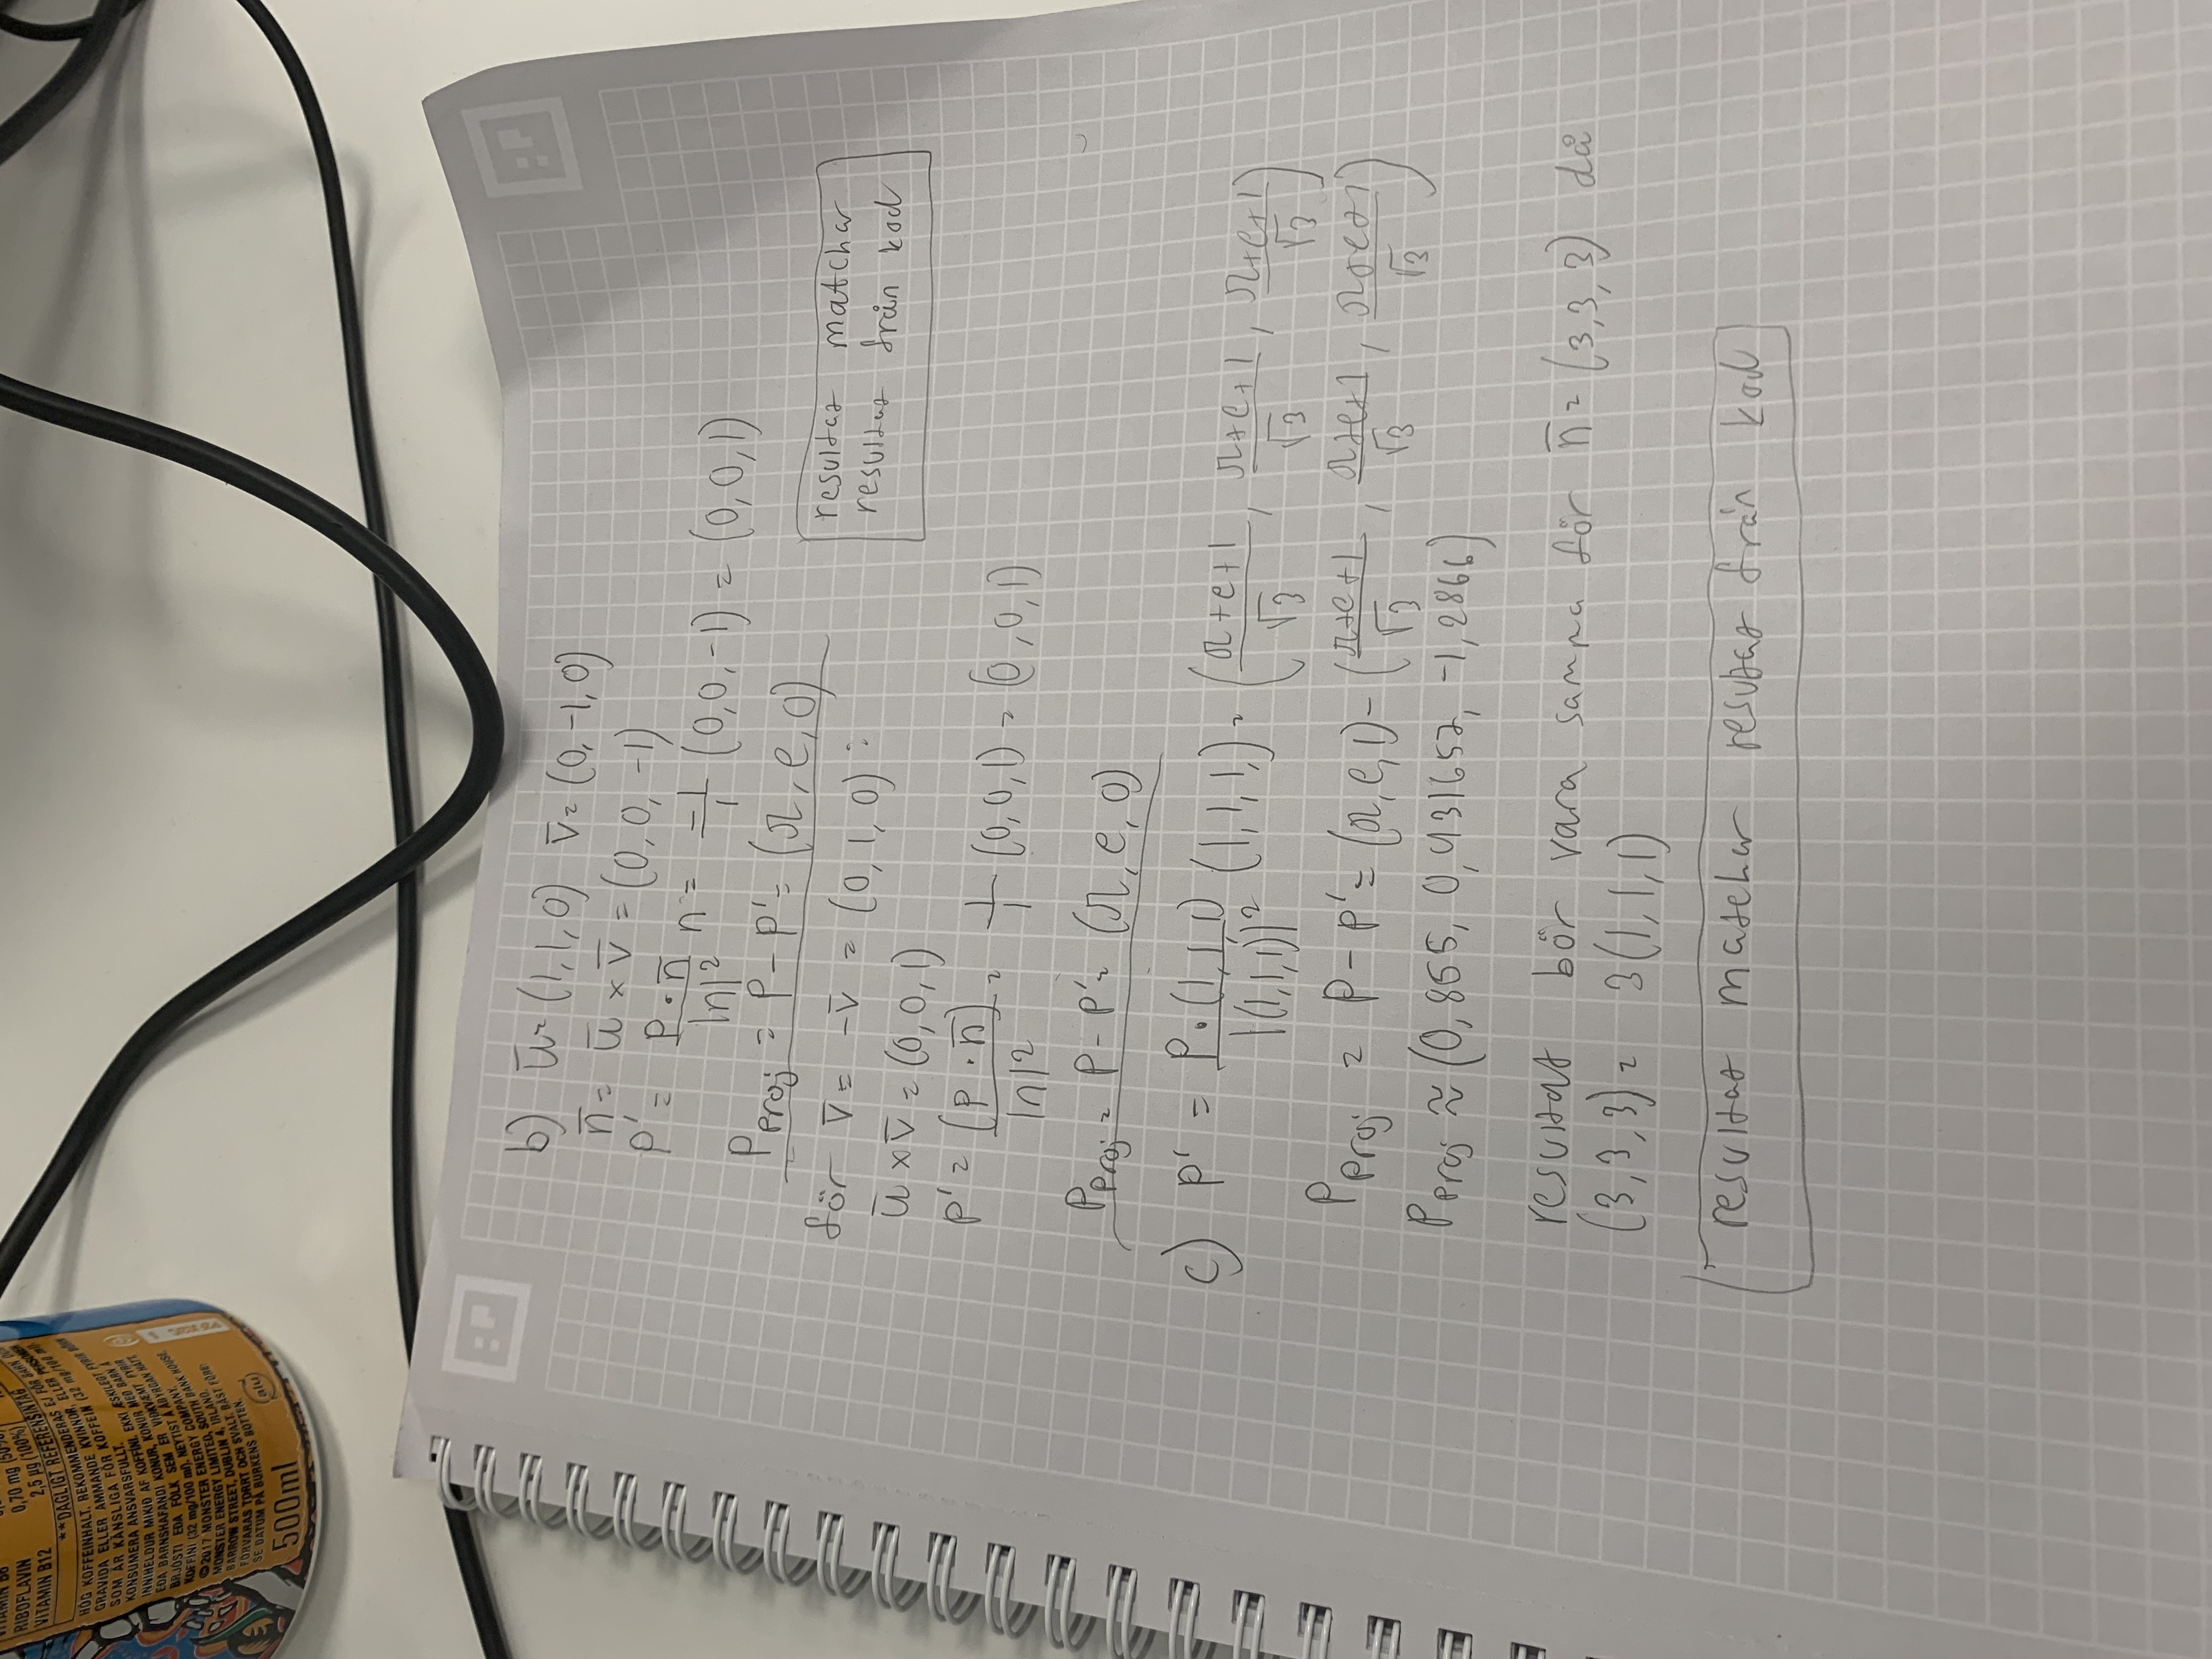 VITAMIN B6
RIBOFLAVIN 0,70 mg (50%)
VITAMIN B12 2,5 µg (100%)
**DAGLIGT REFERENSINTAG
HÖG KOFFEINHALT. REKOMMENDERAS EJ FÖR BARN,
GRAVIDA ELLER AMMANDE KVINNOR, ELLER PERSONER
SOM ÄR KÄNSLIGA FÖR KOFFEIN (32 mg/100 ml).
KONSUMERA ANSVARSFULLT.
INNIHELDUR MIKIÐ AF KOFFÍNI. EKKI ÆSKILEGT FYRIR BÖRN
EÐA BARNSHAFANDI KONUR, KONUR MEÐ BARN Á
BRJÓSTI EÐA FÓLK SEM ER VIÐKVÆMT FYRIR
KOFFÍNI (32 mg/100 ml). NEYTIST Á ÁBYRGAN HÁTT.
©2017 MONSTER ENERGY COMPANY.
MONSTER ENERGY LIMITED, SOUTH BANK HOUSE,
BARROW STREET, DUBLIN 4, IRLAND.
FÖRVARAS TORRT OCH SVALT. BÄST FÖRE:
SE DATUM PÅ BURKENS BOTTEN.
alu
500ml
b) ū = (1,1,0) v̄ = (0,-1,0)
n̄ = ū × v̄ = (0,0,-1)
p' = (p·n̄)/|n|² n = -1/1 (0,0,-1) = (0,0,1)
Pproj = p-p' = (π, e, 0)
för v̄ = -v̄ = (0,1,0):
resultat matchar
resultat från kod
ū × v̄ = (0,0,1)
p' = (p·n̄)/|n|² = 1/1 (0,0,1) = (0,0,1)
Pproj = p-p' = (π, e, 0)
c) p' = p·(1,1,1)/|(1,1,1)|² (1,1,1,) = ((π+e+1)/√3, (π+e+1)/√3, (π+e+1)/√3)
Pproj = p-p' = (π,e,1) - ((π+e+1)/√3, (π+e+1)/√3, (π+e+1)/√3)
Pproj ≈ (0,855, 0,431657, -1,2866)
resultat bör vara samma för n̄ = (3,3,3) då
(3,3,3) = 3(1,1,1)
resultat matchar resultat från kod